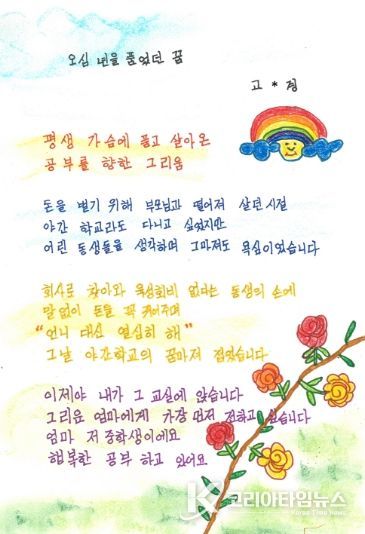 오십 년을 품었던 꿈
고 * 정
평생 가슴에 품고 살아온
공부를 향한 그리움
돈을 벌기 위해 부모님과 떨어져 살던 시절
야간 학교라도 다니고 싶었지만
어린 동생들을 생각하며 그마저도 욕심이었습니다
회사로 찾아와 육성회비 없다는 동생의 손에
말없이 돈을 꼭 쥐어주며
"언니 대신 열심히 해"
그날 야간학교의 꿈마저 접었습니다
이제야 내가 그 교실에 앉습니다
그리운 엄마에게 가장 먼저 전하고 싶습니다
엄마 저 중학생이에요
행복한 공부 하고 있어요
코리아타임뉴스
Korea Time News